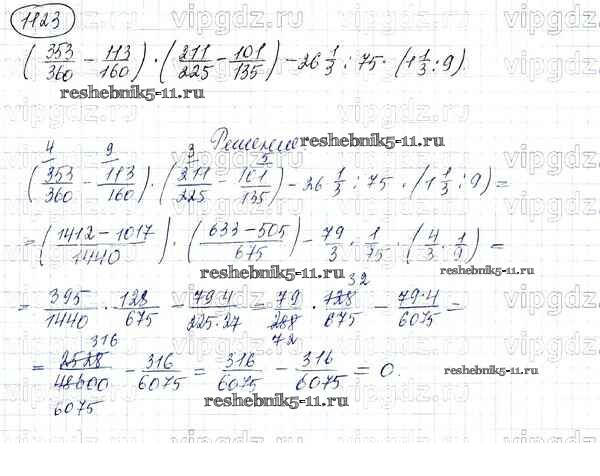 1123
(353/360 − 113/160) · (211/225 − 101/135) − 26 1/3 : 75 · (1 1/3 : 9).
reshebnik5-11.ru
Решение
reshebnik5-11.ru
4 9 3 5
(353/360 − 113/160) · (211/225 − 101/135) − 26 1/3 : 75 · (1 1/3 : 9) =
= ((1412 − 1017)/1440) · ((633 − 505)/675) − 79/3 · 1/75 · (4/3 · 1/9) =
reshebnik5-11.ru
reshebnik5-11.ru
32
= 395/1440 · 128/675 − 79·4/225·27 = 79/288 · 128/675 − 79·4/6075 =
316 72
= 2528/48600 − 316/6075 = 316/6075 − 316/6075 = 0.
6075
reshebnik5-11.ru
reshebnik5-11.ru
vipgdz.ru